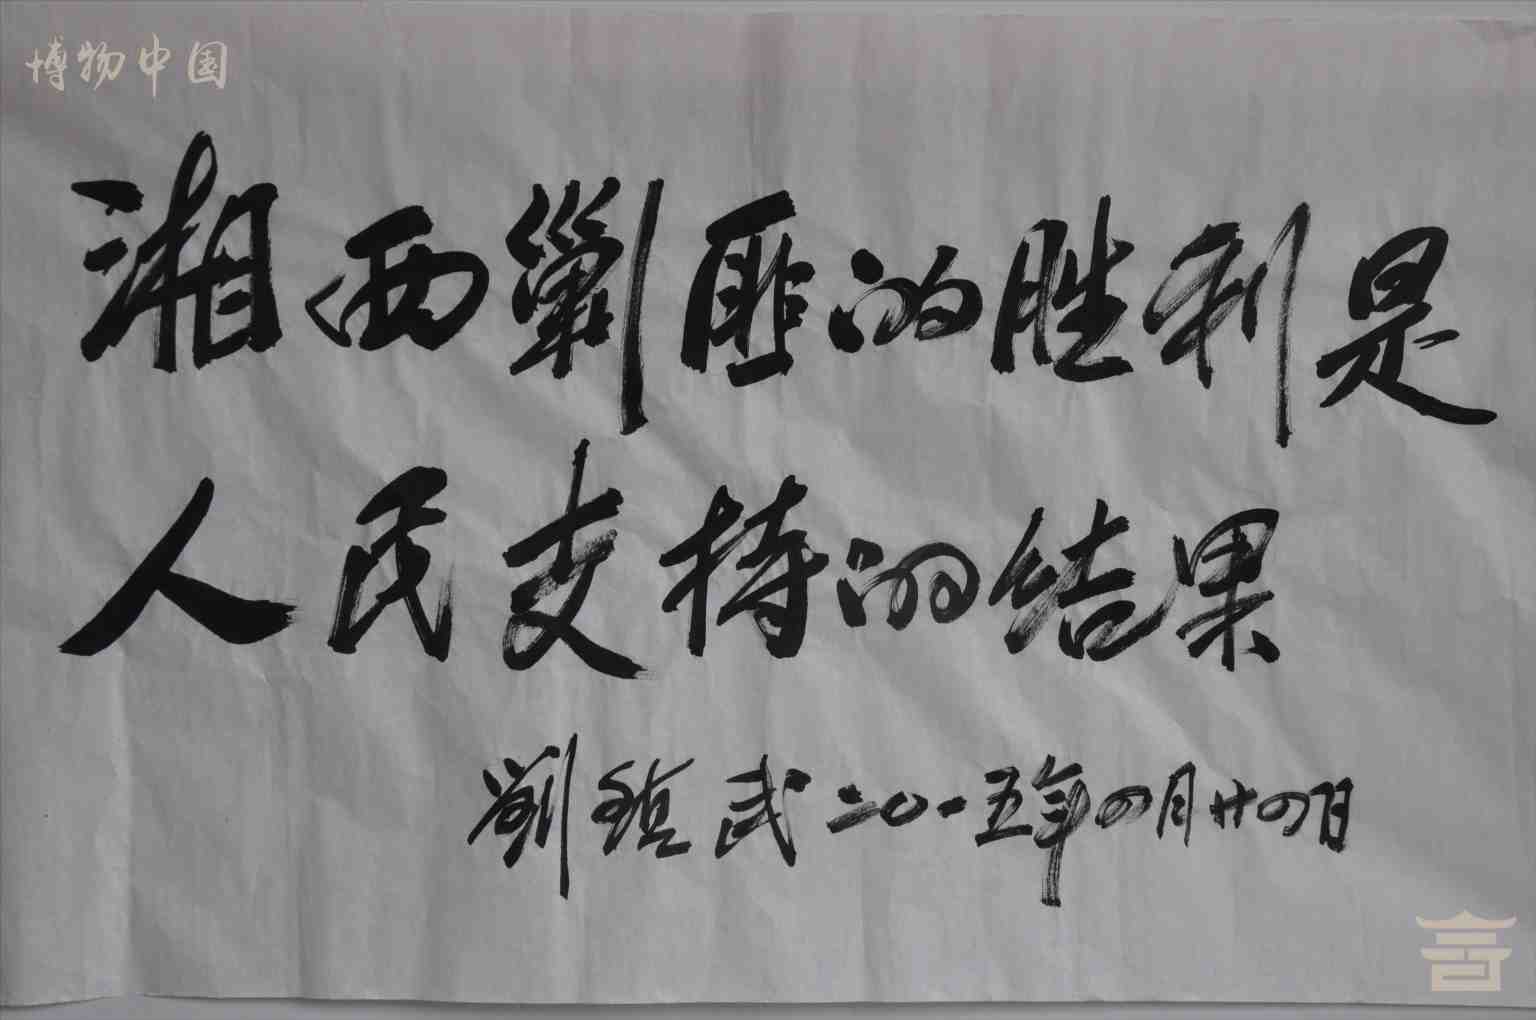 博物中国
湘西剿匪的胜利是
人民支持的结果
劉鎮武二〇一五年四月廿四日